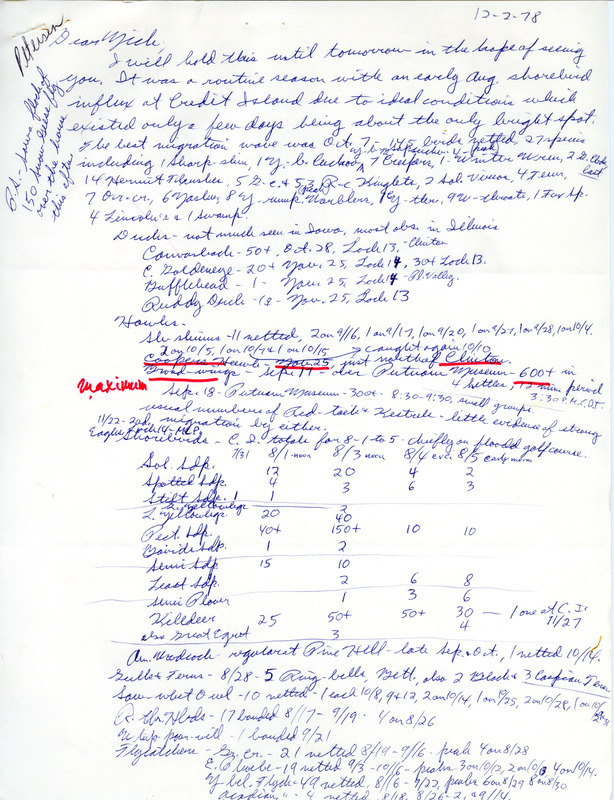 12-2-78
Petersen
Dear Nick,
I will hold this until tomorrow in the hope of seeing
you. It was a routine season with an early Aug. shorebird
influx at Credit Island due to ideal conditions which
existed only a few days being about the only bright spot.
The best migration wave was Oct. 7 - birds netted, 27 species
including 1 Sharp-shin, 1 Y.-b. 7 Creepers, 1 Winter Wren,
14 Hermit Thrushes, 5 G.c. & 53 R-c Kinglets, 2 Sol. Vireos, 4 Tenn,
7 Or-cr, 6 Nash, 8 Y-rump. Warblers, 1 Y-thr, 9 W-throats, 1 Fox Sp-
4 Lincoln's & 1 Swamp.
P.S. - Saw a flock of
150 Snow Geese fly
over the house
this after
Ducks - not much seen in Iowa, most obs. in Illinois
Canvasback - 50+, Oct. 28, Lock 13, - Clinton
C. Goldeneye - 20+ Nov. 25, Lock 14, 30+ Lock 13.
Bufflehead - 1 - Nov. 25, Lock 14 - Pl. Valley.
Ruddy Duck - 18 - Nov. 25, Lock 13
Hawks -
Sh-shinns - 11 netted, 2 on 9/16, 1 on 9/17, 1 on 9/20, 1 on 9/27, 1 on 9/28, 1 on 10/4.
2 on 10/5, 1 on 10/7 & 1 on 10/15 caught again 10/10
Coopers Hawk - Nov. 25 just north of Clinton.
Broad-wings - Sept. 17 - Putnam Museum - 600+ in
maximum
4 kettles 12 mins. period
3:30 P.M. C.D.T.
Sep. 18 - Putnam Museum - 300+ 8:30-9:30, small groups
usual numbers of Red-tails & Kestrels - little evidence of strong
migration by either.
11/22 - 2 ad.
Eagles Lock 14
Shorebirds - C. I. totals for 8-1 to 5 - chiefly on flooded golf course.
7/31 8/1-noon 8/3 noon 8/4 eve. 8/5 early morn
Sol. Sdp. 12 20 4 2
Spotted Sdp. 4 3 6 3
Stilt Sdp. 1 1
G. Yellowlegs 2
L. Yellowlegs 20 40
Pect. Sdp. 40+ 150+ 10 10
Bairds Sdp. 1 2
Semi Sdp 15 10
Least Sdp. 2 6 8
Semi Plover 1 3 6
Killdeer 25 50+ 50+ 30 - 1 one at C. I. 11/27
also Great Egret 3 4
Am. Woodcock - regular at Pine Hill - late Sep. & Oct., 1 netted 10/14.
Gulls & Terns - 8/28 - 5 Ring-bills, Bett, also 2 Black & 3 Caspian Terns
Saw-whet Owl - 10 netted - 1 each 10/8, 9 & 12, 2 on 10/14, 1 on 10/25, 2 on 10/28, 1 on 10/
R. thr. Hbds - 17 banded 8/17 - 9/19 - 4 on 8/26
Whip-poor-will - 1 banded 9/21
Flycatchers - Gr. cr. - 21 netted 8/19 - 9/16 - peak 4 on 8/28
E. Phoebe - 19 netted 9/3 - 10/16 - peaks 3 on 10/2, 2 on 10/3, 4 on 10/14.
Y. bel. Flyc. - 49 netted, 8/16 - 9/22, peaks 6 on 8/29 8 on 8/30
Acadian " - 4 netted 8/18, 8/26-2, & 9/14.